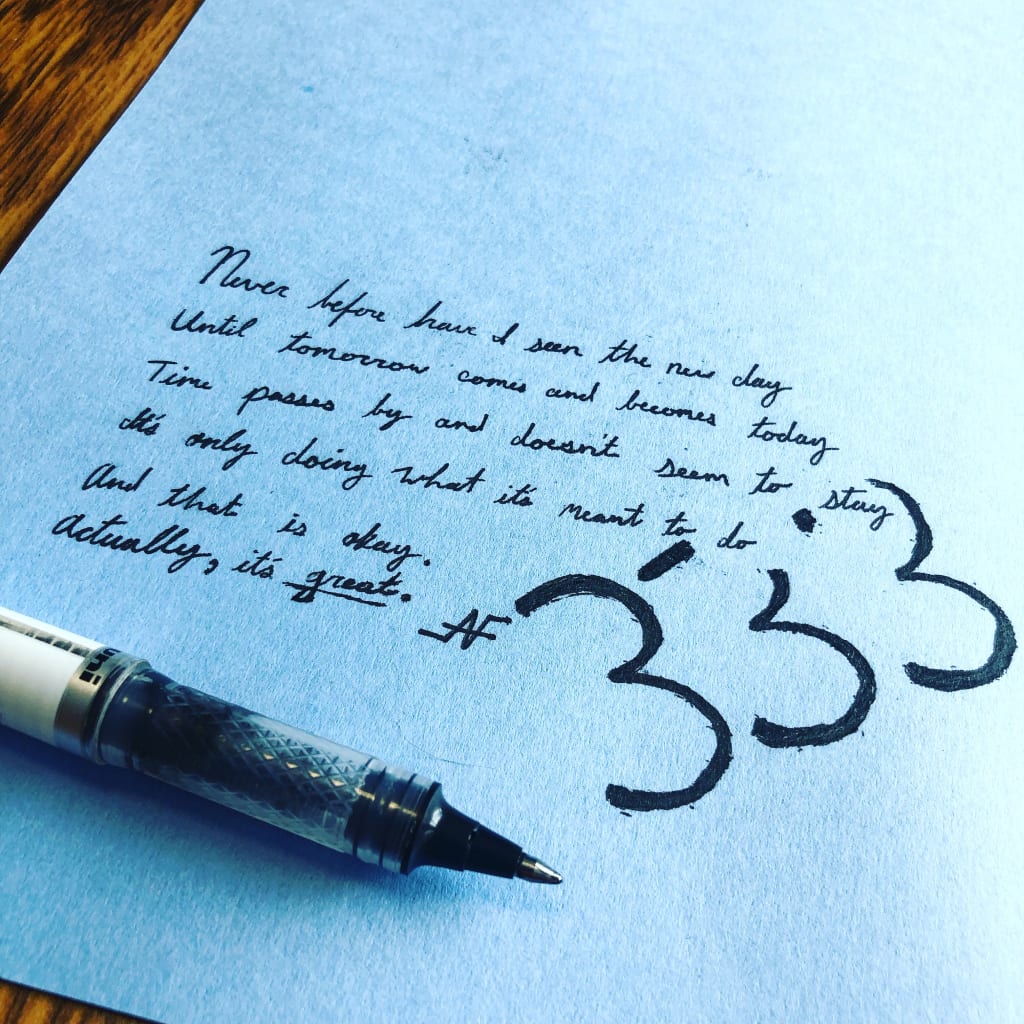 Never before have I seen the new day
Until tomorrow comes and becomes today
Time passes by and doesn't seem to stay
It's only doing what it's meant to do
And that is okay.
Actually, it's great.
AF
333